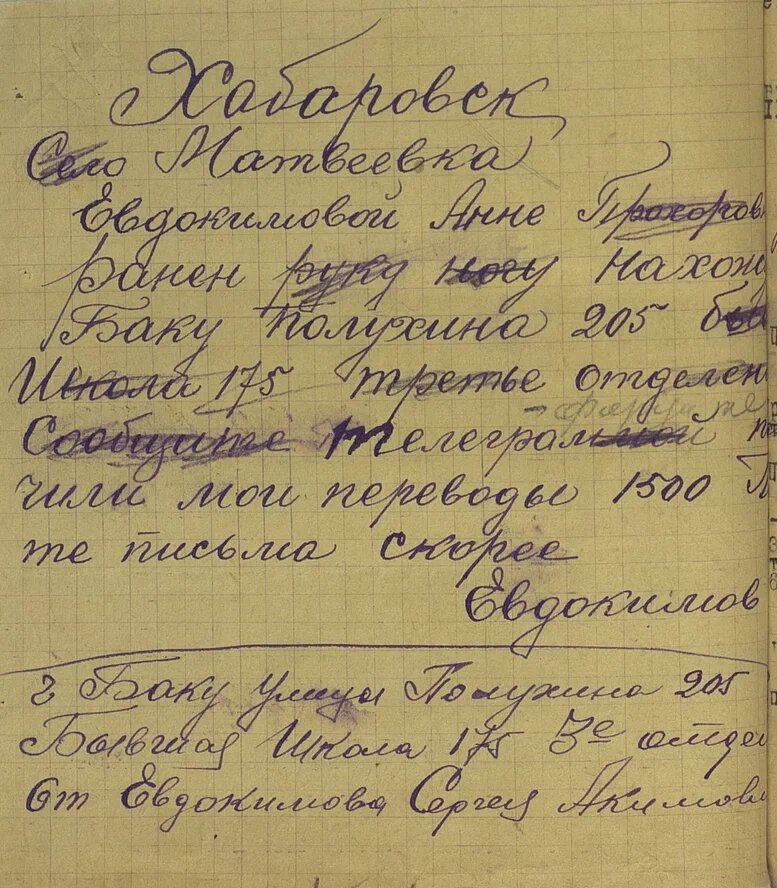 Хабаровск
Село Матвеевка
Евдокимовой Анне Прохоров
ранен руку ногу нахож
Баку Полухина 205
Школа 175 третье отделен
Сообщите телеграммой
чили мои переводы 1500
те письма скорее
Евдокимов
г Баку улица Полухина 205
Бывшая Школа 175 3е отде
От Евдокимова Сергея Акимов